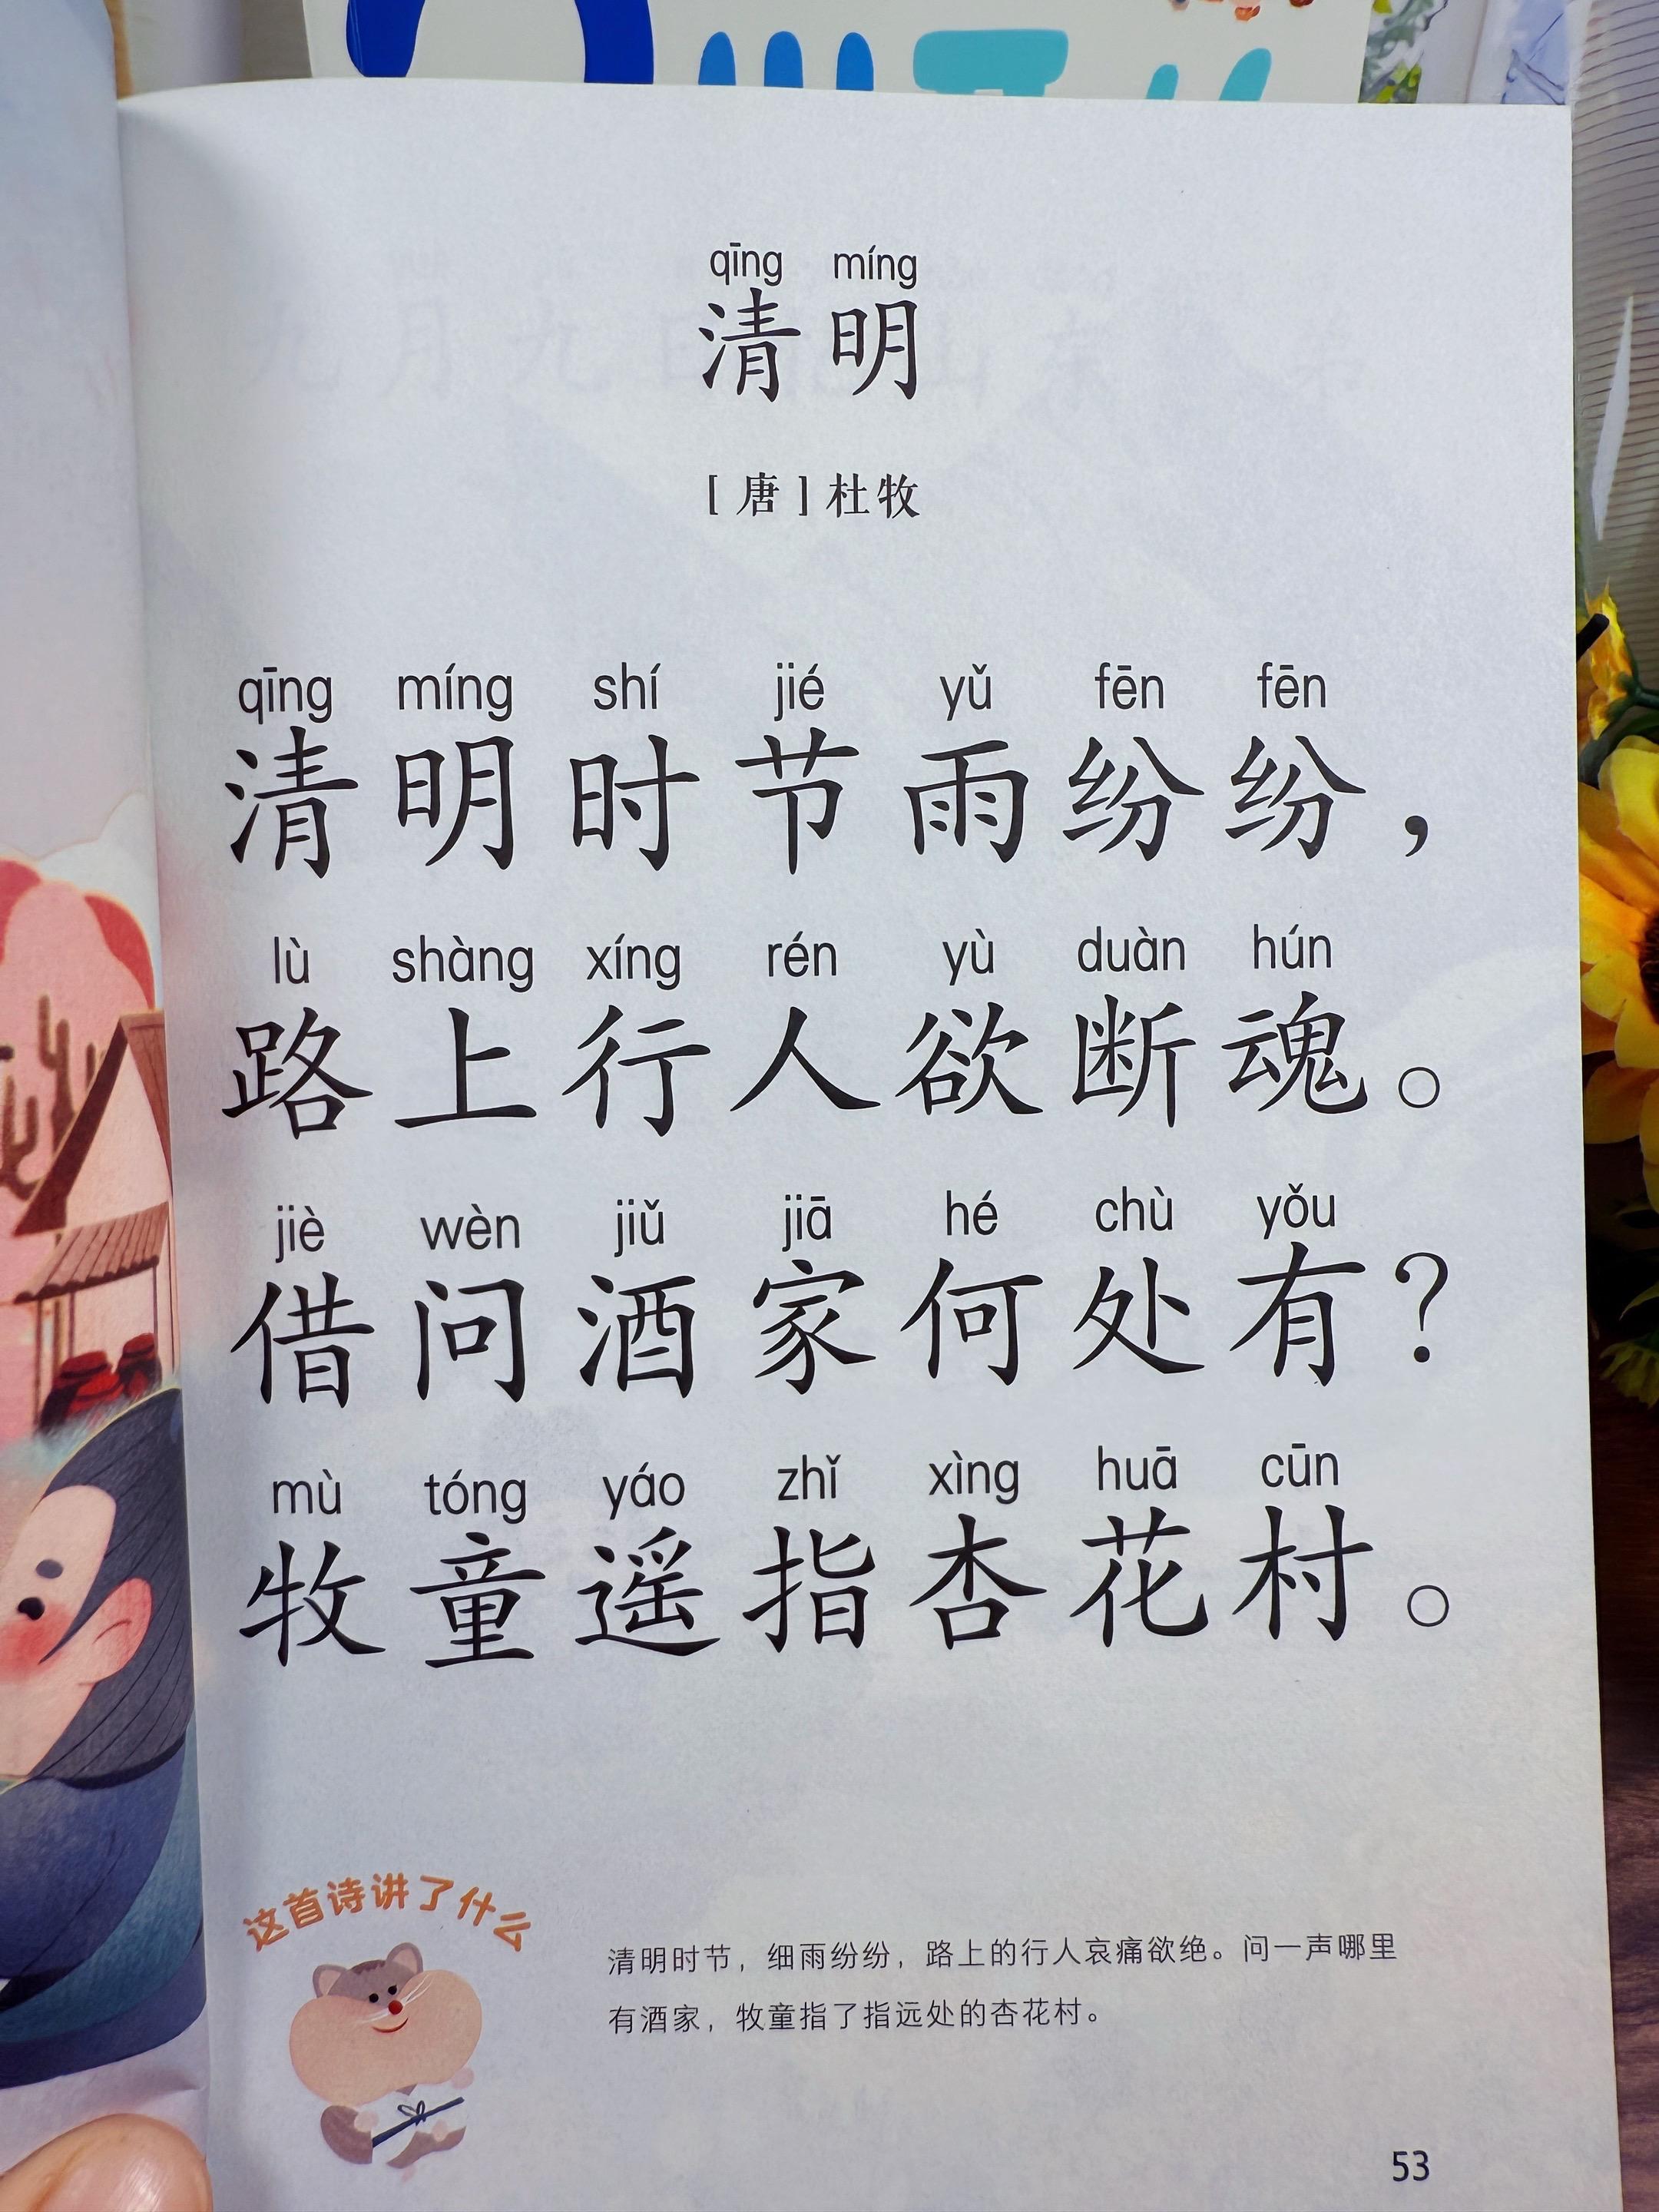 qīng míng
清明
[唐]杜牧
qīng míng shí jié yǔ fēn fēn
清明时节雨纷纷，
lù shàng xíng rén yù duàn hún
路上行人欲断魂。
jiè wèn jiǔ jiā hé chù yǒu
借问酒家何处有？
mù tóng yáo zhǐ xìng huā cūn
牧童遥指杏花村。
这首诗讲了什么
清明时节，细雨纷纷，路上的行人哀痛欲绝。问一声哪里
有酒家，牧童指了指远处的杏花村。
53